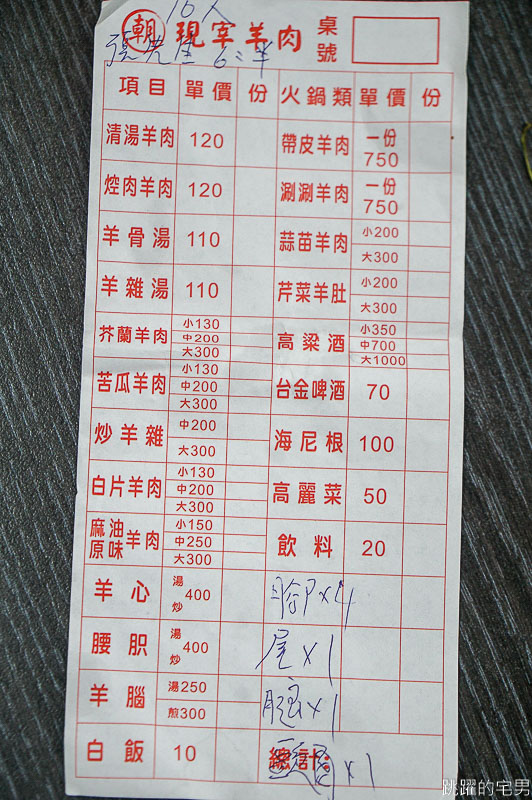 10人
朝 現宰羊肉 桌號
6:半
項目 單價 份 火鍋類 單價 份
清湯羊肉 120 帶皮羊肉 一份 750
焢肉羊肉 120 涮涮羊肉 一份 750
羊骨湯 110 蒜苗羊肉 小200 大300
羊雜湯 110 芹菜羊肚 小200 大300
芥蘭羊肉 小130 中200 大300 高梁酒 小350 中700 大1000
苦瓜羊肉 小130 中200 大300 台金啤酒 70
炒羊雜 中200 大300 海尼根 100
白片羊肉 小130 中200 大300 高麗菜 50
麻油原味羊肉 小150 中250 大300 飲料 20
羊心 湯炒 400 腳×4
腰胑 湯炒 400 尾×1
羊腦 湯250 煎300 ×1
白飯 10 總計: ×1
跳躍的宅男